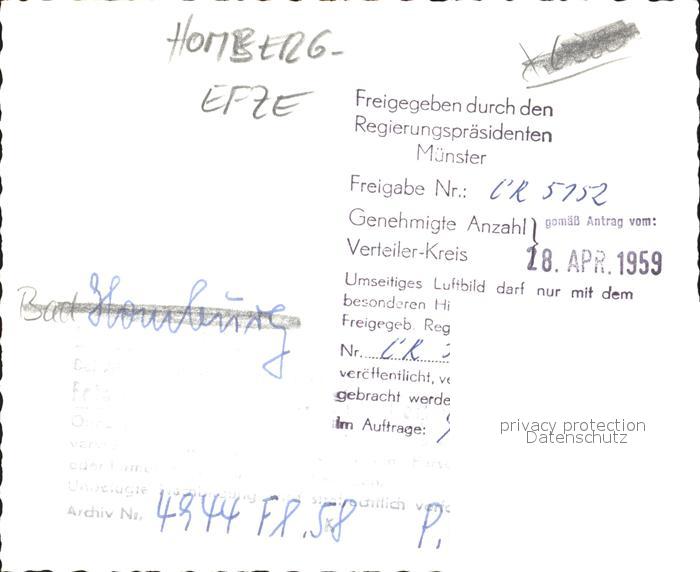 HOMBERG-
EFZE
Freigegeben durch den
Regierungspräsidenten
Münster
Freigabe Nr.: CR 5152
Genehmigte Anzahl } gemäß Antrag vom:
Verteiler-Kreis
28. APR. 1959
Umseitiges Luftbild darf nur mit dem
besonderen Hi
Freigegeb. Reg
Bad Homburg
Nr. CR
veröffentlicht, ve
gebracht werde
Im Auftrage:
privacy protection
Datenschutz
oder
Unbefugte strafrechtlich
Archiv Nr. 4944 F8.58 P.